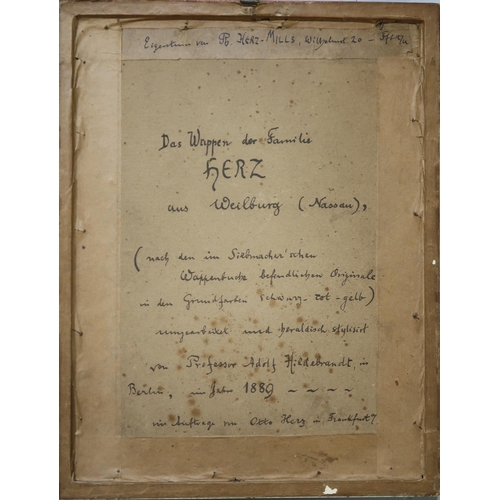 Eigentum von Ph. HERZ-MILLS, 20 – Ffm
Das Wappen der Familie
HERZ
aus Weilburg (Nassau),
(nach dem im Siebmacher'schen
Wappenbuche befindlichen Originale
in den Grundfarben schwarz-rot-gelb)
umgearbeitet und heraldisch stylisirt
von Professor Adolf Hildebrandt in
Berlin, im Jahre 1889 ~ ~ ~ ~
im Auftrage von Otto Herz in Frankfurt